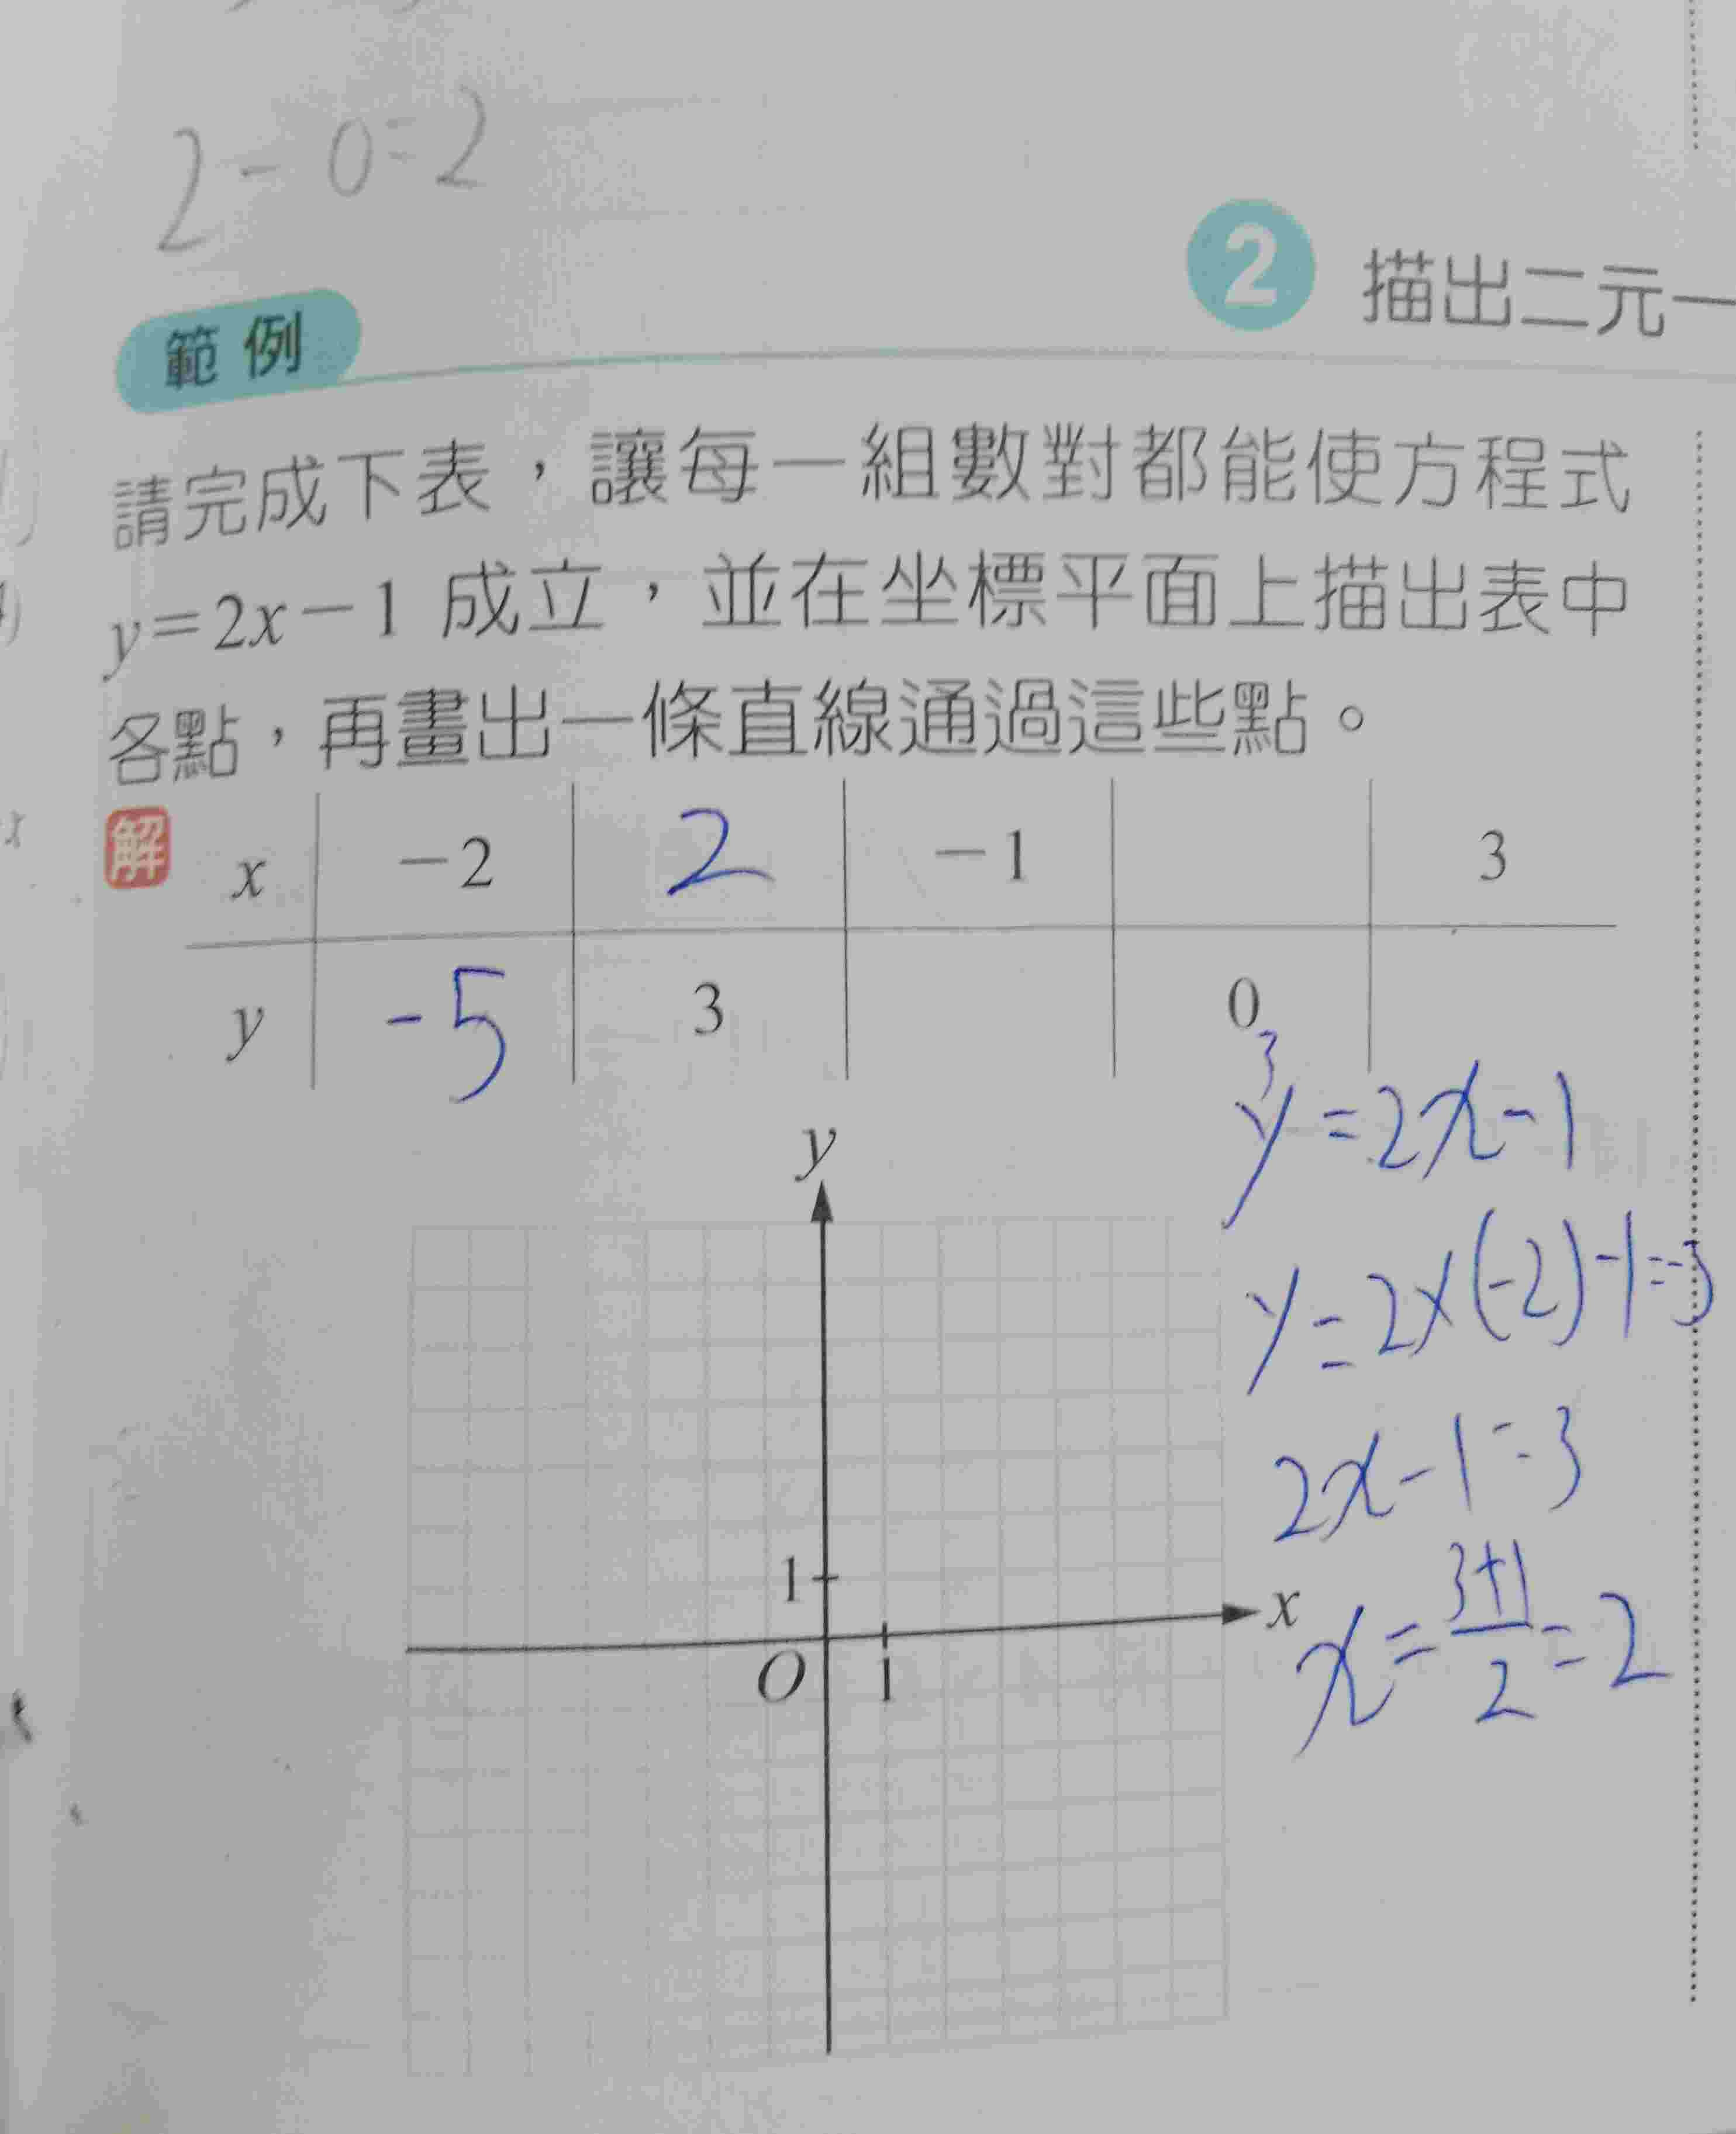 2-0=2
2 描出二元一
範例
請完成下表，讓每一組數對都能使方程式
y=2x-1 成立，並在坐標平面上描出表中
各點，再畫出一條直線通過這些點。
解
x -2 2 -1 3
y -5 3 0
3
y=2x-1
y
y=2×(-2)-1=-3
2x-1=3
1
x
x=3+1/2=2
O 1